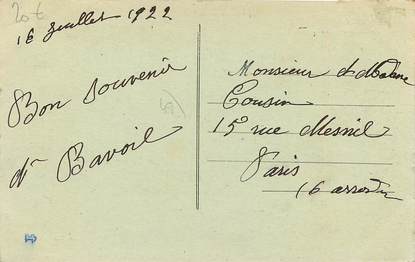 20 €
16 Juillet 1922
Bon souvenir
dr Bavoil
Monsieur et Madame
Cousin
15 rue Mesnil
Paris
16 arrondt